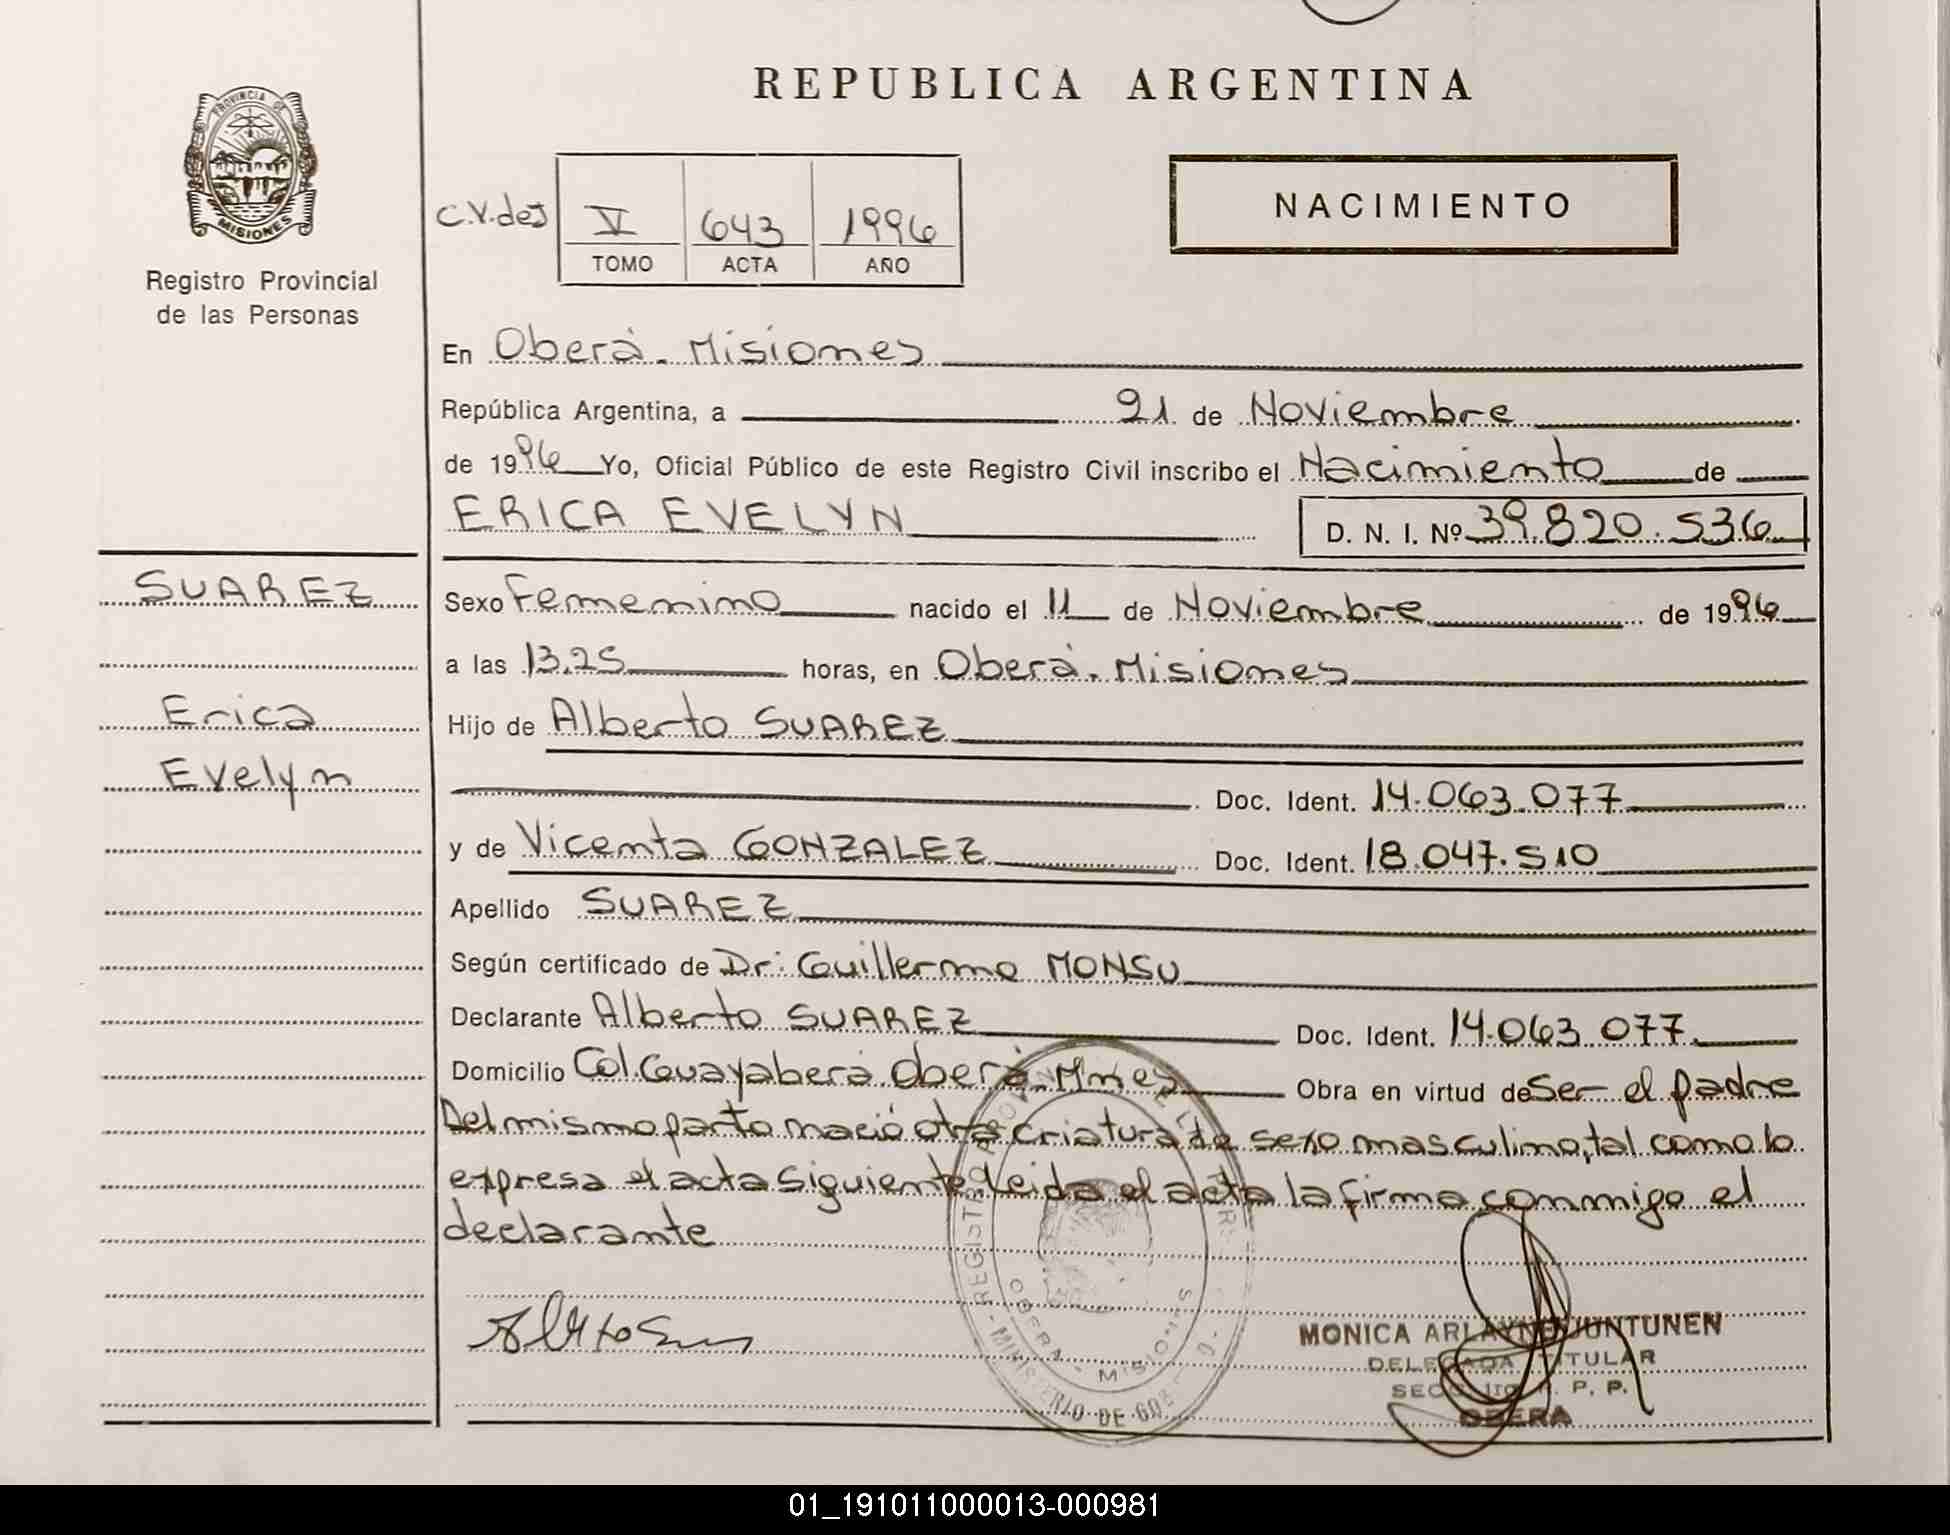 REPUBLICA ARGENTINA
PROVINCIA DE
MISIONES
Registro Provincial
de las Personas
V 643 1996
TOMO ACTA AÑO
NACIMIENTO
En Oberá. Misiones
República Argentina, a 21 de Noviembre
de 1996 Yo, Oficial Público de este Registro Civil inscribo el Nacimiento de
ERICA EVELYN D. N. I. Nº 39.820.536
SUAREZ
Erica
Evelyn
Sexo Femenino nacido el 11 de Noviembre de 1996
a las 13,25 horas, en Oberá. Misiones
Hijo de Alberto SUAREZ
Doc. Ident. 14.063.077
y de Vicenta GONZALEZ Doc. Ident. 18.047.510
Apellido SUAREZ
Según certificado de Dr: Guillermo MONSU
Declarante Alberto SUAREZ Doc. Ident. 14.063.077
Domicilio Col. Guayabera Oberá. Mnes Obra en virtud de Ser el padre
Del mismo parto nació otra criatura de sexo masculino, tal como lo
expresa el acta siguiente Leida el acta la firma conmigo el
declarante
OBERA - MISIONES
MONICA ARLAYNE JUNTUNEN
DELEGADA TITULAR
R. P. P.
OBERA
01_191011000013-000981